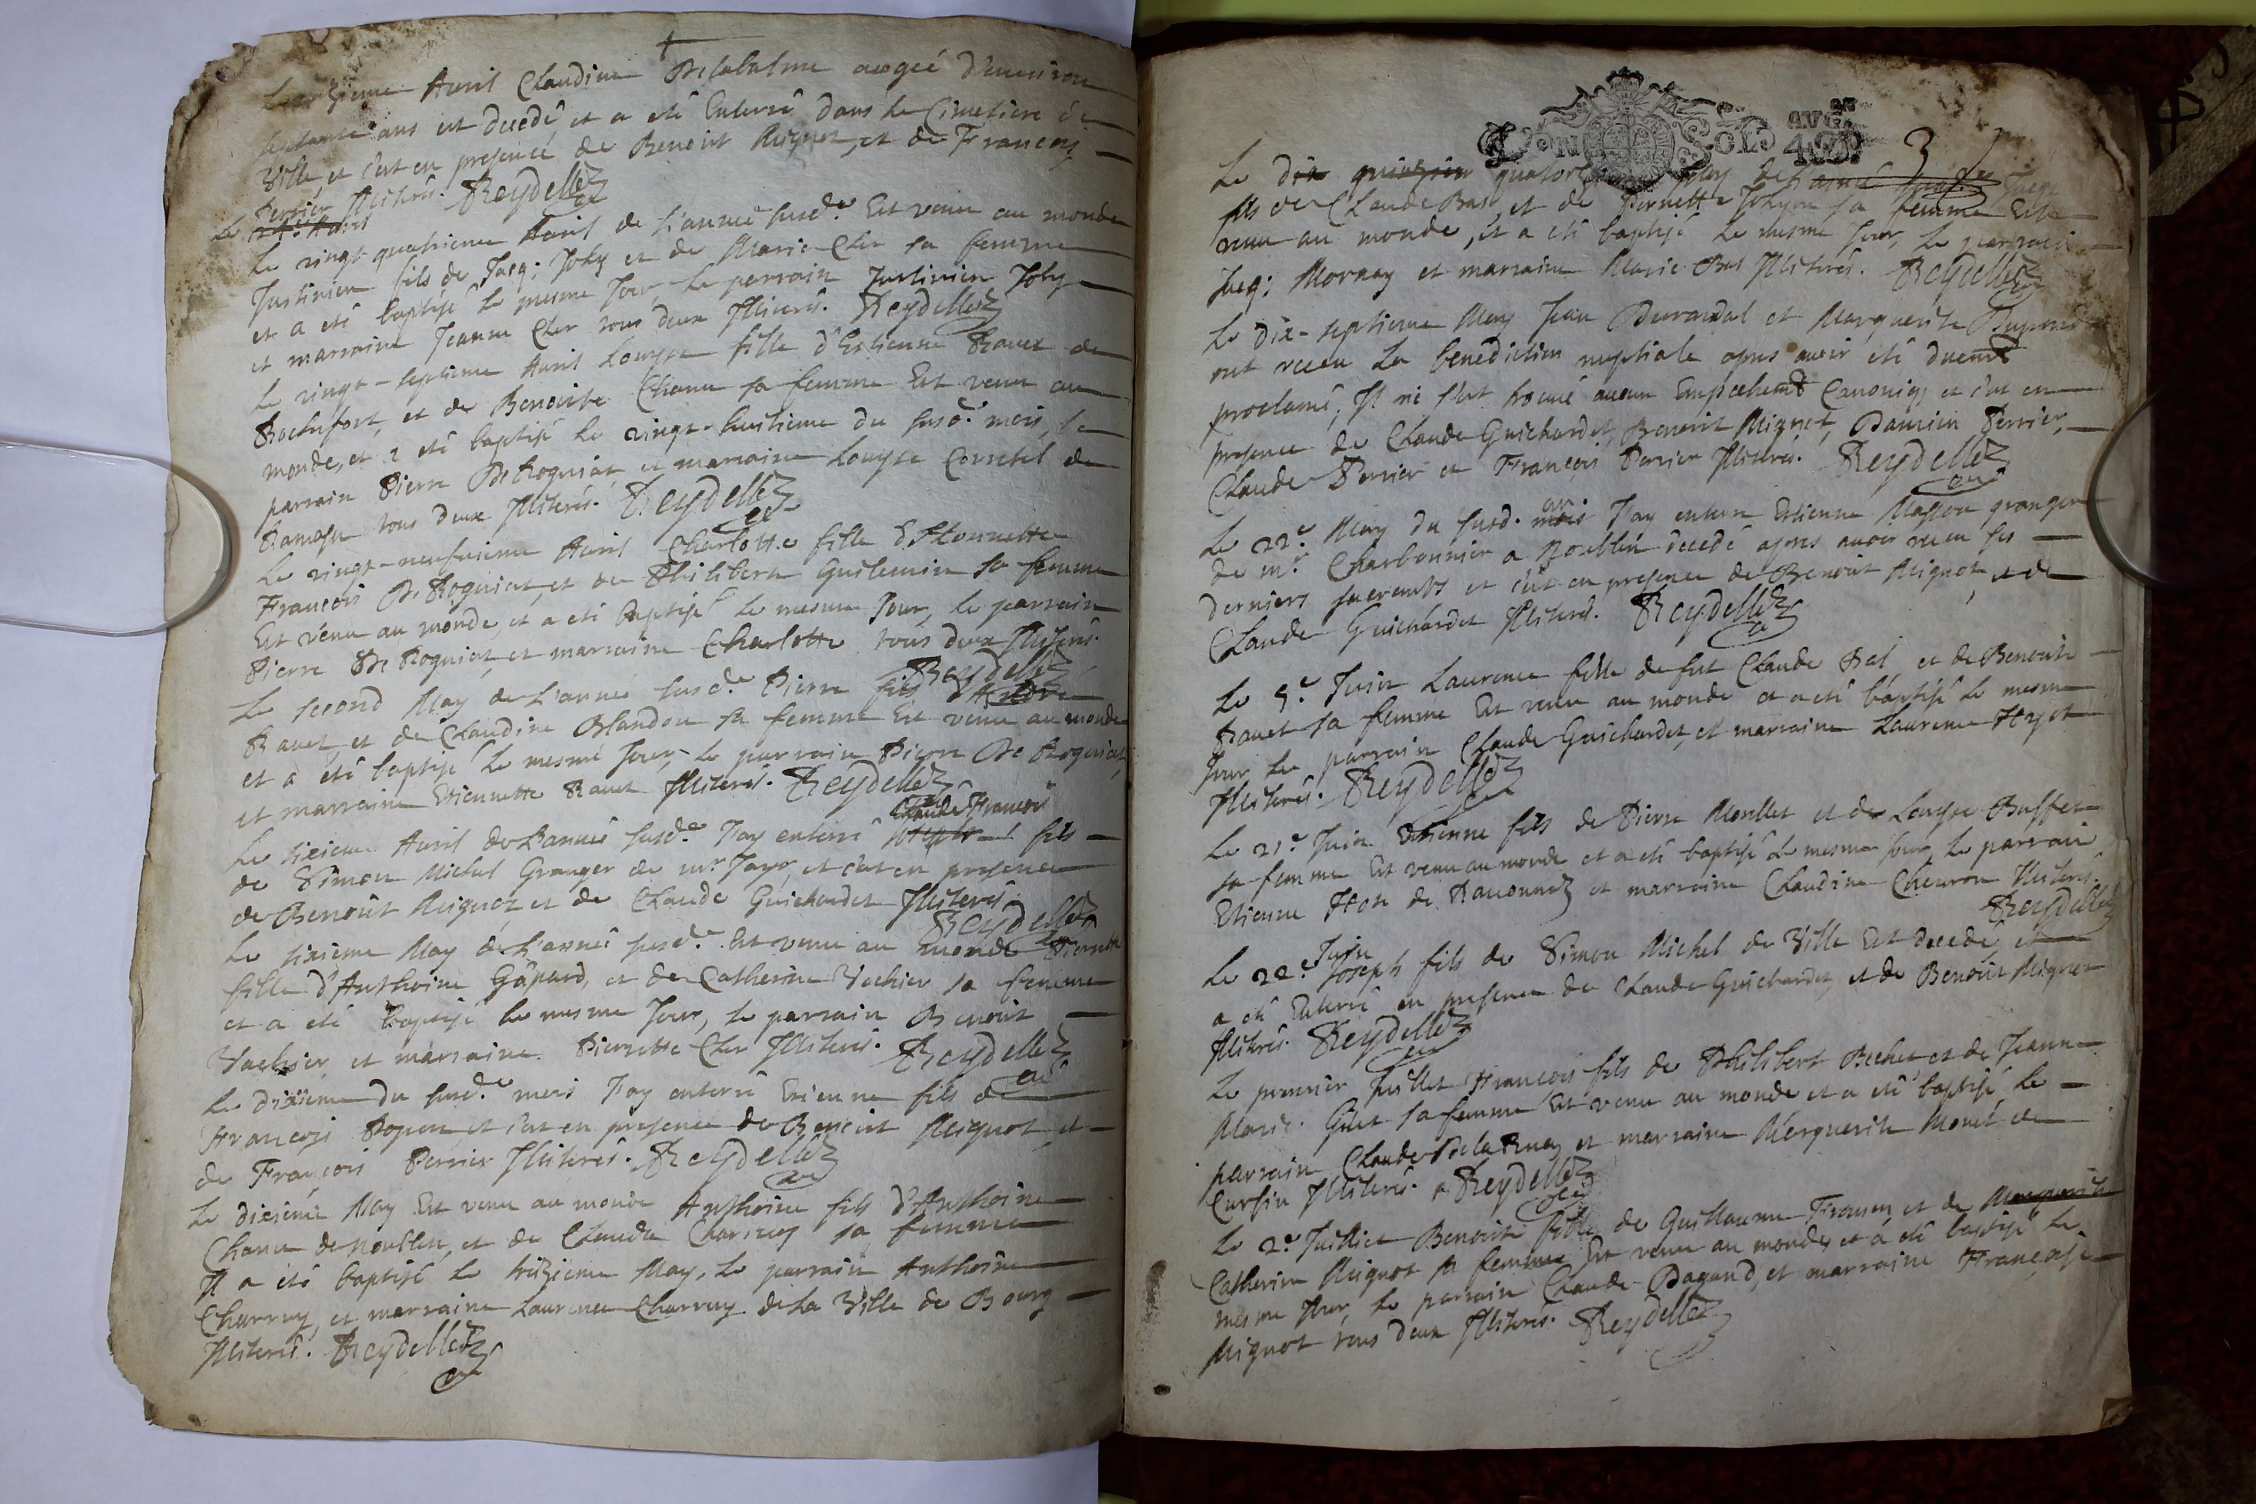 Avril Claudine Delabalme aagée d'environ
septante ans est decedé et a eté Enterré dans le Cimetiere de
Ville et c'est en presence de Benoist Mignot, et de François
Perrier Illiterés. Reydellet
Le
Le vingt-quatrieme Avril de l'année susd.e Est venu au monde
Justinien fils de Jacq: Joly et de Marie Cler sa femme
et a eté baptisé le mesme Jour, le parrain Justinien Joly
et marraine Jeanne Cler tous deux Illiterés. Reydellet
Le vingt-septieme Avril Louyse fille d'Estienne Ravet de
Rochefort, et de Benoiste Chanu sa femme Est venu au
monde, et a eté baptisé le vingt-huitieme du susd.t mois, le
parrain Pierre De Roguiat, et marraine Louyse Cornetel de
Ramasse tous deux Illiterés. Reydellet
Le vingt-neufvieme Avril Charlotte fille
François De Roguiat, et de Philiberte Guilemin sa femme
Est venu au monde, et a eté baptisé le mesme Jour, le parrain
Pierre De Roguiat, et marraine Charlotte tous deux Illiterés.
Reydellet
Le second May de l'année susd.e Pierre fils d'André
Ravet, et de Claudine Blandon sa femme Est venu au monde
et a eté baptisé le mesme Jour, le parrain Pierre De Roguiat,
et marraine Etiennette Ravet Illiterés. Reydellet
Claude François
Le sixieme Avril de l'année susd.e J'ay enterré fils
de Simon Michel Granger de mr. Jayr, et c'est en presence
de Benoist Mignot, et de Claude Guichardet Illiterés.
Reydellet
Le sixieme May de l'année susd.e Est venu au monde Pierrette
fille d'Anthoine Gapard, et de Catherine Vachier sa femme
et a eté baptisé le mesme Jour, le parrain Benoit
Vachier, et marraine Pierrette Cler Illiterés. Reydellet
Le dixieme du susd.e mois J'ay enterré Etienne fils de
François Popon et c'est en presence de Benoist Mignot, et
de François Perrier Illiterés. Reydellet
Le dixieme May Est venu au monde Anthoine fils d'Anthoine
Chanu de Noublen, et de Claude Charruy sa femme
Il a eté baptisé le treizieme May, le parrain Anthoine
Charruy, et marraine Laurence Charruy de la Ville de Bourg
Illiterés. Reydellet
GEN SOLS AVG.
3
Le dix quatorzieme May
fils de Claude Bas, et de Pernette Johyon sa femme Est
venu au monde, et a eté baptisé le mesme Jour, le parrain
Jacq: Mornay et marraine Marie Bas Illiterés. Reydellet
Le dix-septieme May Jean Durandal et Marguerite
ont receu La benediction nuptiale apres avoir eté duemt
proclamé, Il ne s'est trouvé aucun Empechemt Canoniq; et c'est en
presence de Claude Guichardet, Benoist Mignot, Damien Perrier,
Claude Perrier et François Perrier Illiterés. Reydellet
Le 22.e May du susd. an J'ay enterré Estienne Masson granger
de mr. Charbonnier a Noublen decedé apres avoir receu ses
derniers sacremts et c'est en presence de Benoist Mignot, et de
Claude Guichardet Illiterés. Reydellet
Le 5.e Juin Laurence fille de fut Claude Bal et de Benoite
Ravet sa femme Est venu au monde et a eté baptisé le mesme
Jour, le parrain Claude Guichardet, et marraine Laurence
Illiterés. Reydellet
Le 21.e Juin Etienne fils de Pierre Mollet et de Louyse Buffet
sa femme Est venu au monde et a eté baptisé le mesme Jour, le parrain
Etienne de Ravonnaz et marraine Claudine Chevron Illiterés.
Reydellet
Juin
Le 22.e Joseph fils de Simon Michel de Ville Est decedé, et
a eté Enterré en presence de Claude Guichardet, et de Benoist Mignot
Illiterés. Reydellet
Le premier Juillet François fils de Philibert Bechet et de Jeanne
Marie sa femme Est venu au monde et a eté baptisé le
parrain Claude De la Ruaz et marraine Marguerite Monet de
Cursin Illiterés. Reydellet
Le 2.e Juillet Benoiste fille de Guillaume et de Marguerite
Catherine Mignot sa femme Est venu au monde, et a eté baptisé le
mesme Jour, le parrain Claude Dagand, et marraine Françoise
Mignot tous deux Illiterés. Reydellet